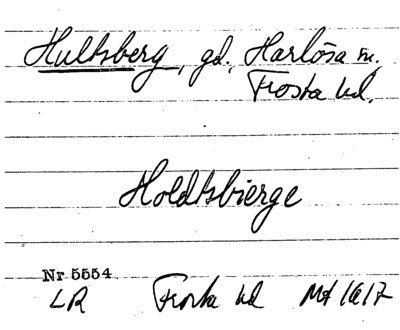 Hultsberg, gd., Harlösa sn,
Frosta hd.
Holdtsbierge
Nr 5554
LR Frosta hd Mt 1617